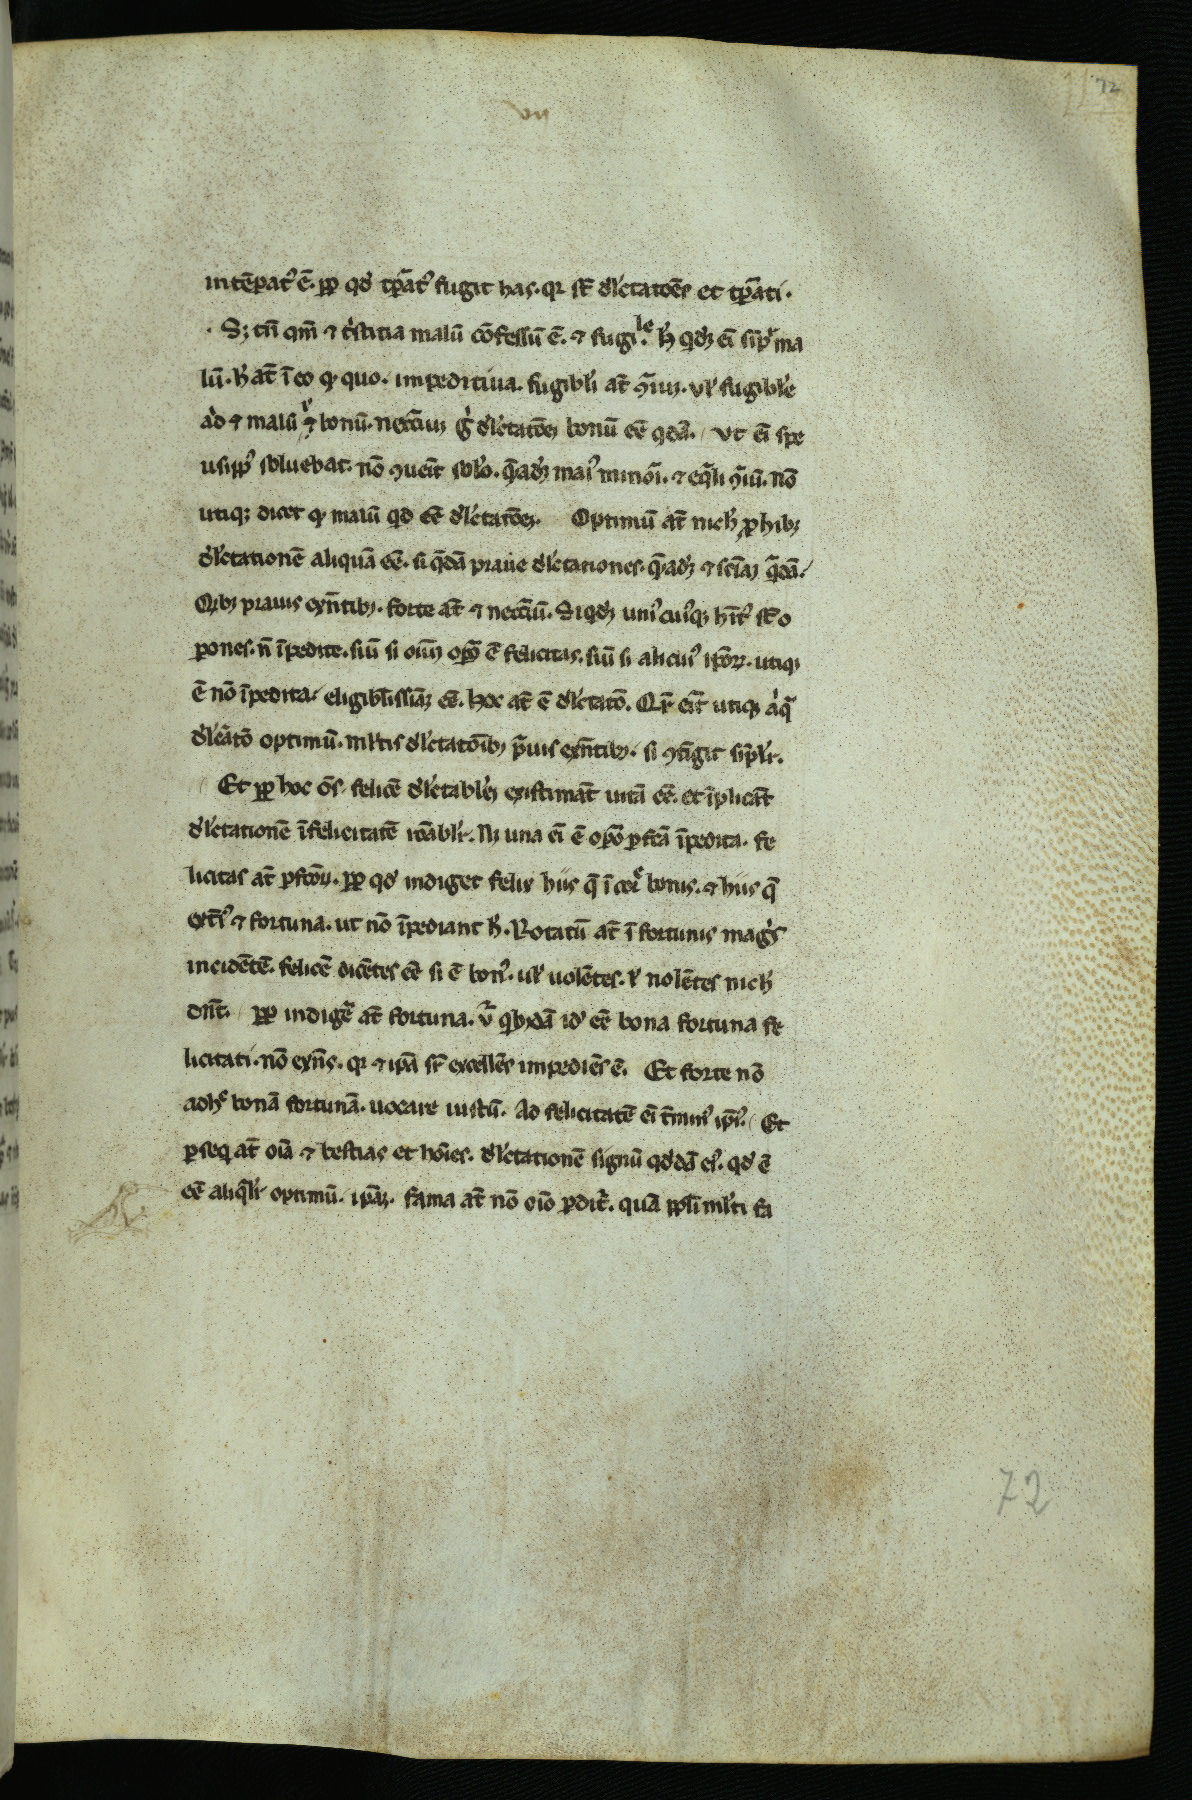 vii
72
intēpatꝰ ē. ꝓp̄ qđ tp̄atꝰ fugit has. qr st̄ dl̓ctatōēs et tp̄ati.
S; tn̄ qm̄ ⁊ tⁱstitia malū cōfessū ē. ⁊ fugi.le h̓ qdꝫ ei᷑ sīpꝉ ma
lū. h̓ at̄ ī eo ꝙ quo. impeditiua. fugibli at̄ ꝯͣiuꝫ. uꝉ fugible
ad ⁊ malū ꝉ ⁊ bonū. neccͣiuꝫ gͥ dl̓ctatōeꝫ bonū eē qdā. ut ei᷑ spe
usippꝰ soluebat. nō ꝯueīt solo. qͣadꝫ maiꝰ minoͥi. ⁊ eqͣli ꝯͣiū. nō
utiqꝫ dicet ꝙ malū qđ eē dl̓ctatōeꝫ. Optimū at̄ nich̓ ꝓhibꝫ
dl̓ctationē aliquā eē. si qͣdā praue dl̓ctationes. qͣadꝫ ⁊ sciāꝫ qͣdā.
Qibꝫ prauis exn̄tibꝫ. forte at̄ ⁊ neccͣiū. Si qdꝫ uniꝰcuiꝰqꝫ hīt̓ st̄ o
pōnes. n̄ īpedite. siū si oīuꝫ opō ē felicitas. siū si alicuiꝰ ip̄oꝝ. utiqꝫ
ē nō īpedita. eligiblissiāꝫ eē. hoc at̄ ē dl̓ctatō. Qr̄ eīt utiqꝫ aͥqͣ
dl̓ctatō optimū. ml̓tis dl̓ctatōibꝫ pͣuis exn̄tibꝫ. si ꝯtīgit sīpl̓r.
Et ꝓp̄ hoc ōs felicē dl̓ctableꝫ existimāt uitā eē. et īplicāt
dl̓ctationē ī felicitatē rōabl̓r. N̄ una ei᷑ ē opō ꝑfcā īpedita. fe
licitas at̄ ꝑfcōꝝ. ꝓp̄ qđ indiget felix hiis q̄ ī corͤ bonis. ⁊ hiis q̄
ext̄ꝰ ⁊ fortuna. ut nō īpediant h̓. Rotatū at̄ ī fortunis magͥs
incidētē. felicē dicētes eē si ē bonꝰ. uꝉ uolētes. ꝉ nolētes nich̓
dn̄t. ꝓp̄ indigeͤ at̄ fortuna. uͬ qibꝫdā id eē bona fortuna fe
licitati. nō exn̄s. qr ⁊ ip̄a sꝛ̄ excellēs impediēs ē. Et forte nō
adhͨ bonā fortunā. uocare iustū. Ad felicitatē ei᷑ t̄minꝰ ip̄iꝰ. Et
ꝑseq at̄ oīa ⁊ bestias et hoīes. dl̓ctationē signū qđdā eiꝰ. qđ ē
eē aliql̓r optimū. ip̄aꝫ. fama at̄ nō oīo ꝑditͥ. quā ppl̓i ml̓ti fa
72